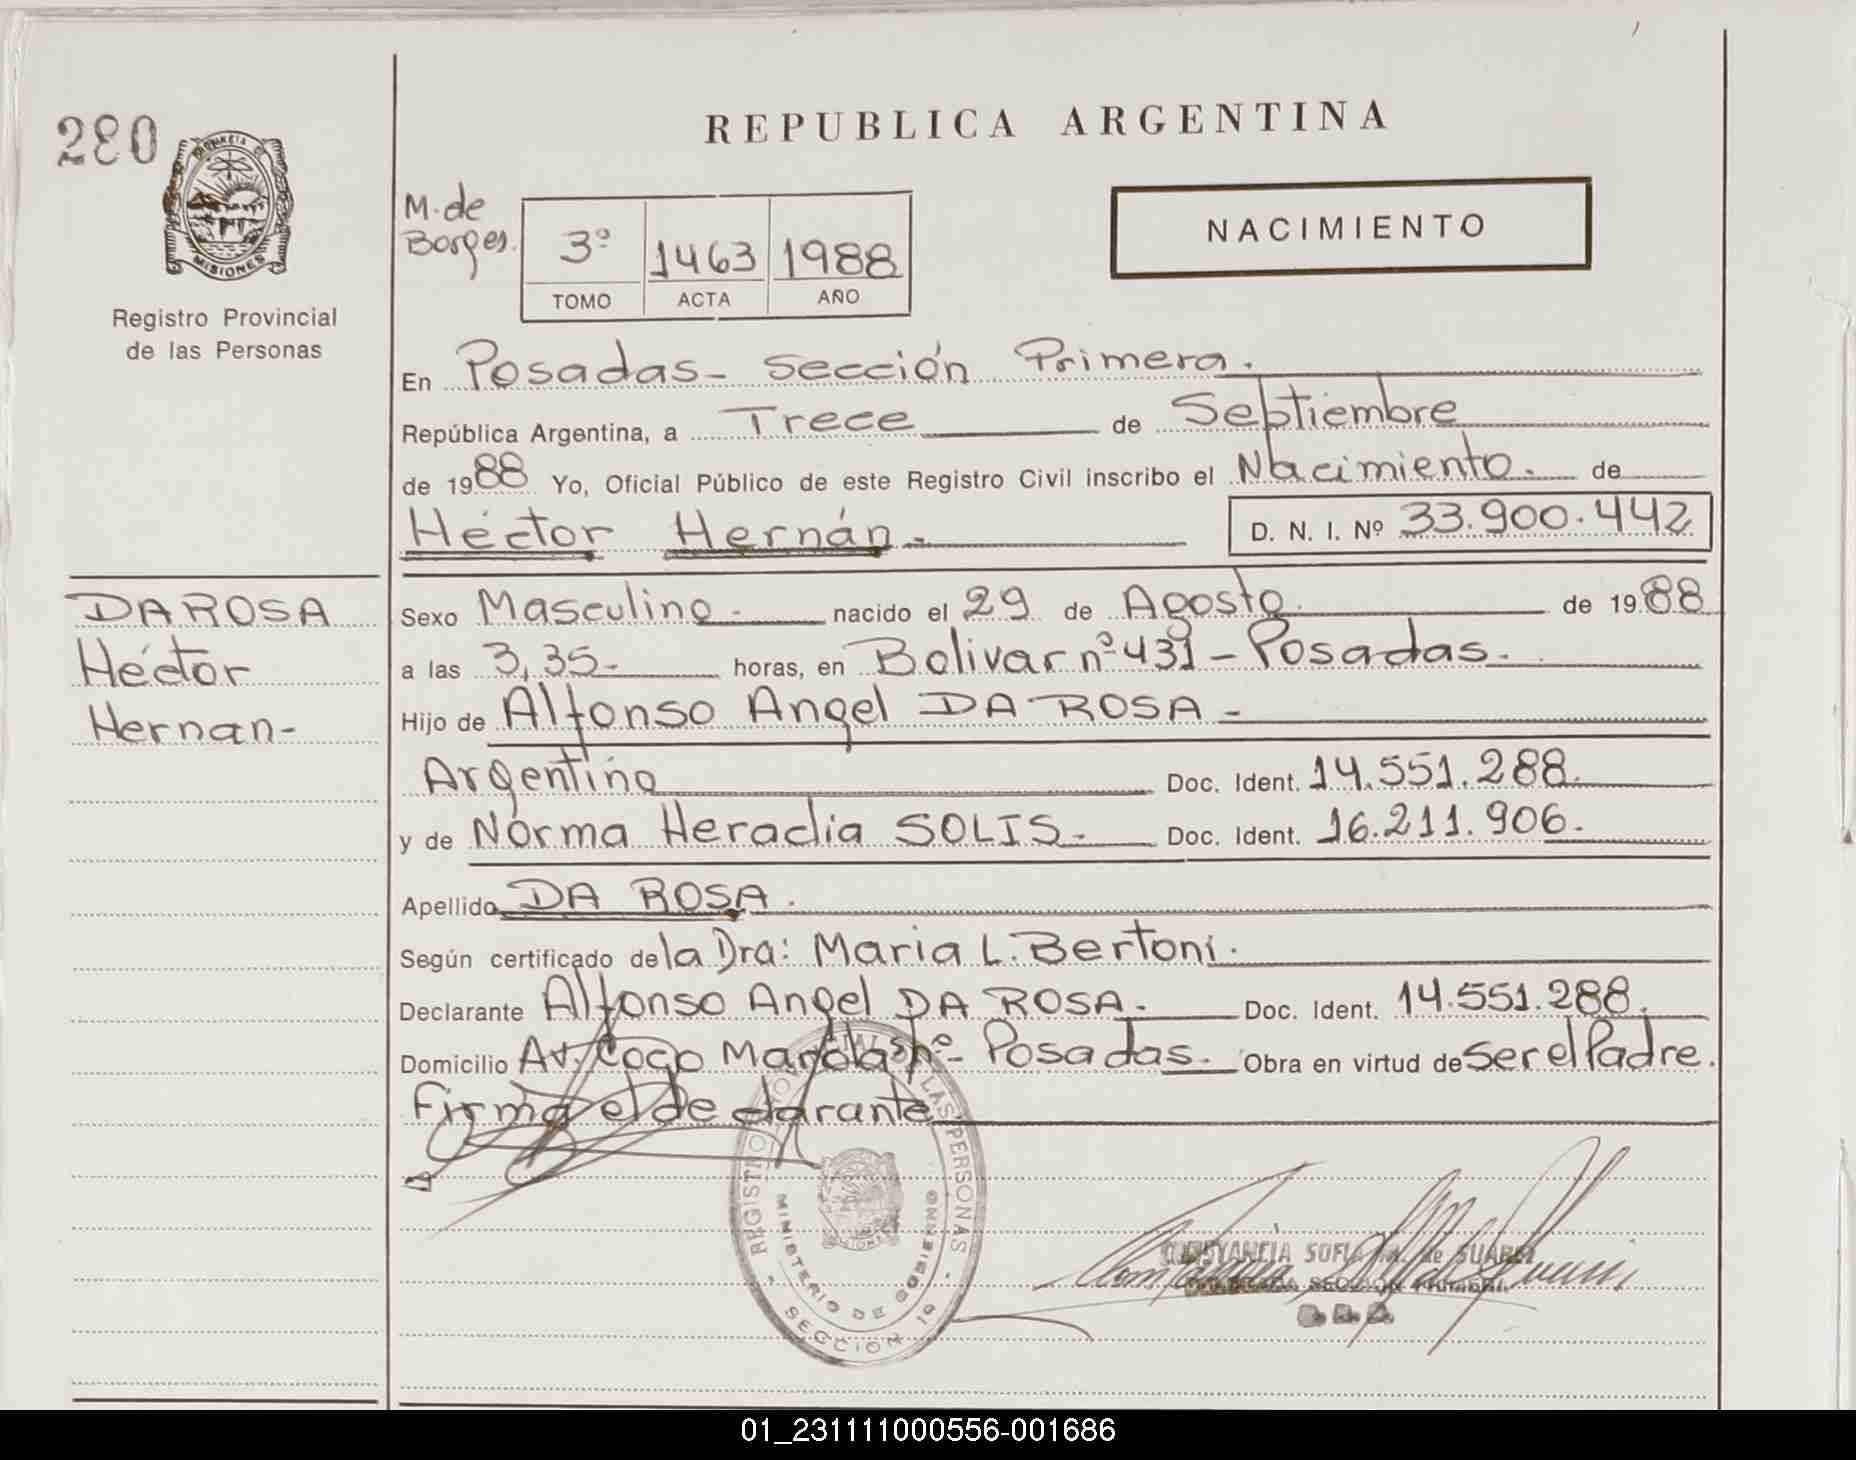 280
PROVINCIA DE
MISIONES
Registro Provincial
de las Personas
REPUBLICA ARGENTINA
NACIMIENTO
M. de
Borges.
3º 1463 1988
TOMO ACTA AÑO
En Posadas - Sección Primera.
República Argentina, a Trece de Septiembre
de 1988 Yo, Oficial Público de este Registro Civil inscribo el Nacimiento. de
Héctor Hernán.- D. N. I. Nº 33.900.442
DA ROSA
Héctor
Hernan-
Sexo Masculino.- nacido el 29 de Agosto. de 1988
a las 3,35.- horas, en Bolivar nº 431 - Posadas.
Hijo de Alfonso Angel DA ROSA -
Argentino Doc. Ident. 14.551.288.
y de Norma Heradia SOLIS.- Doc. Ident. 16.211.906.
Apellido DA ROSA.
Según certificado de la Dra: Maria L. Bertoni.
Declarante Alfonso Angel DA ROSA.- Doc. Ident. 14.551.288.
Domicilio Av. Coco Marola s/nº- Posadas.- Obra en virtud de Ser el Padre.
Firma el declarante
REGISTRO PROVINCIAL DE LAS PERSONAS
MINISTERIO DE GOBIERNO
SECCION 1º
CONSTANCIA SOFIA M. de SUAREZ
SECCION PRIMERA
01_231111000556-001686